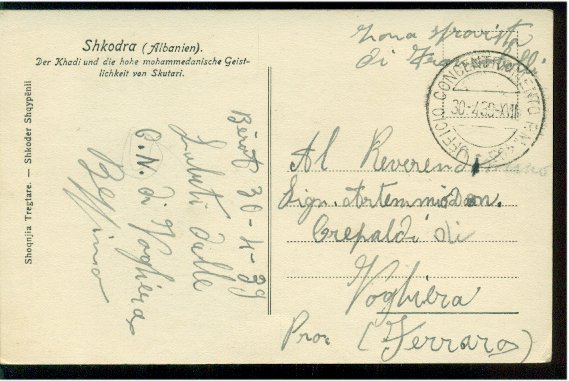 Shkodra (Albanien).
Der Khadi und die hohe mohammedanische Geist-
lichkeit von Skutari.
Shoqnjia Tregtare. — Shkoder Shqypënii
Zona sprovista
di
UFFICIO CONCENTRAMENTO P.M.
30·4·39·XVII
Berat 30-4-39
Saluti dalle
C.N. di Voghiera
Al Reverend
Sign. Artemmio Don.
Crepaldi di
Voghiera
Prov (Ferrara)